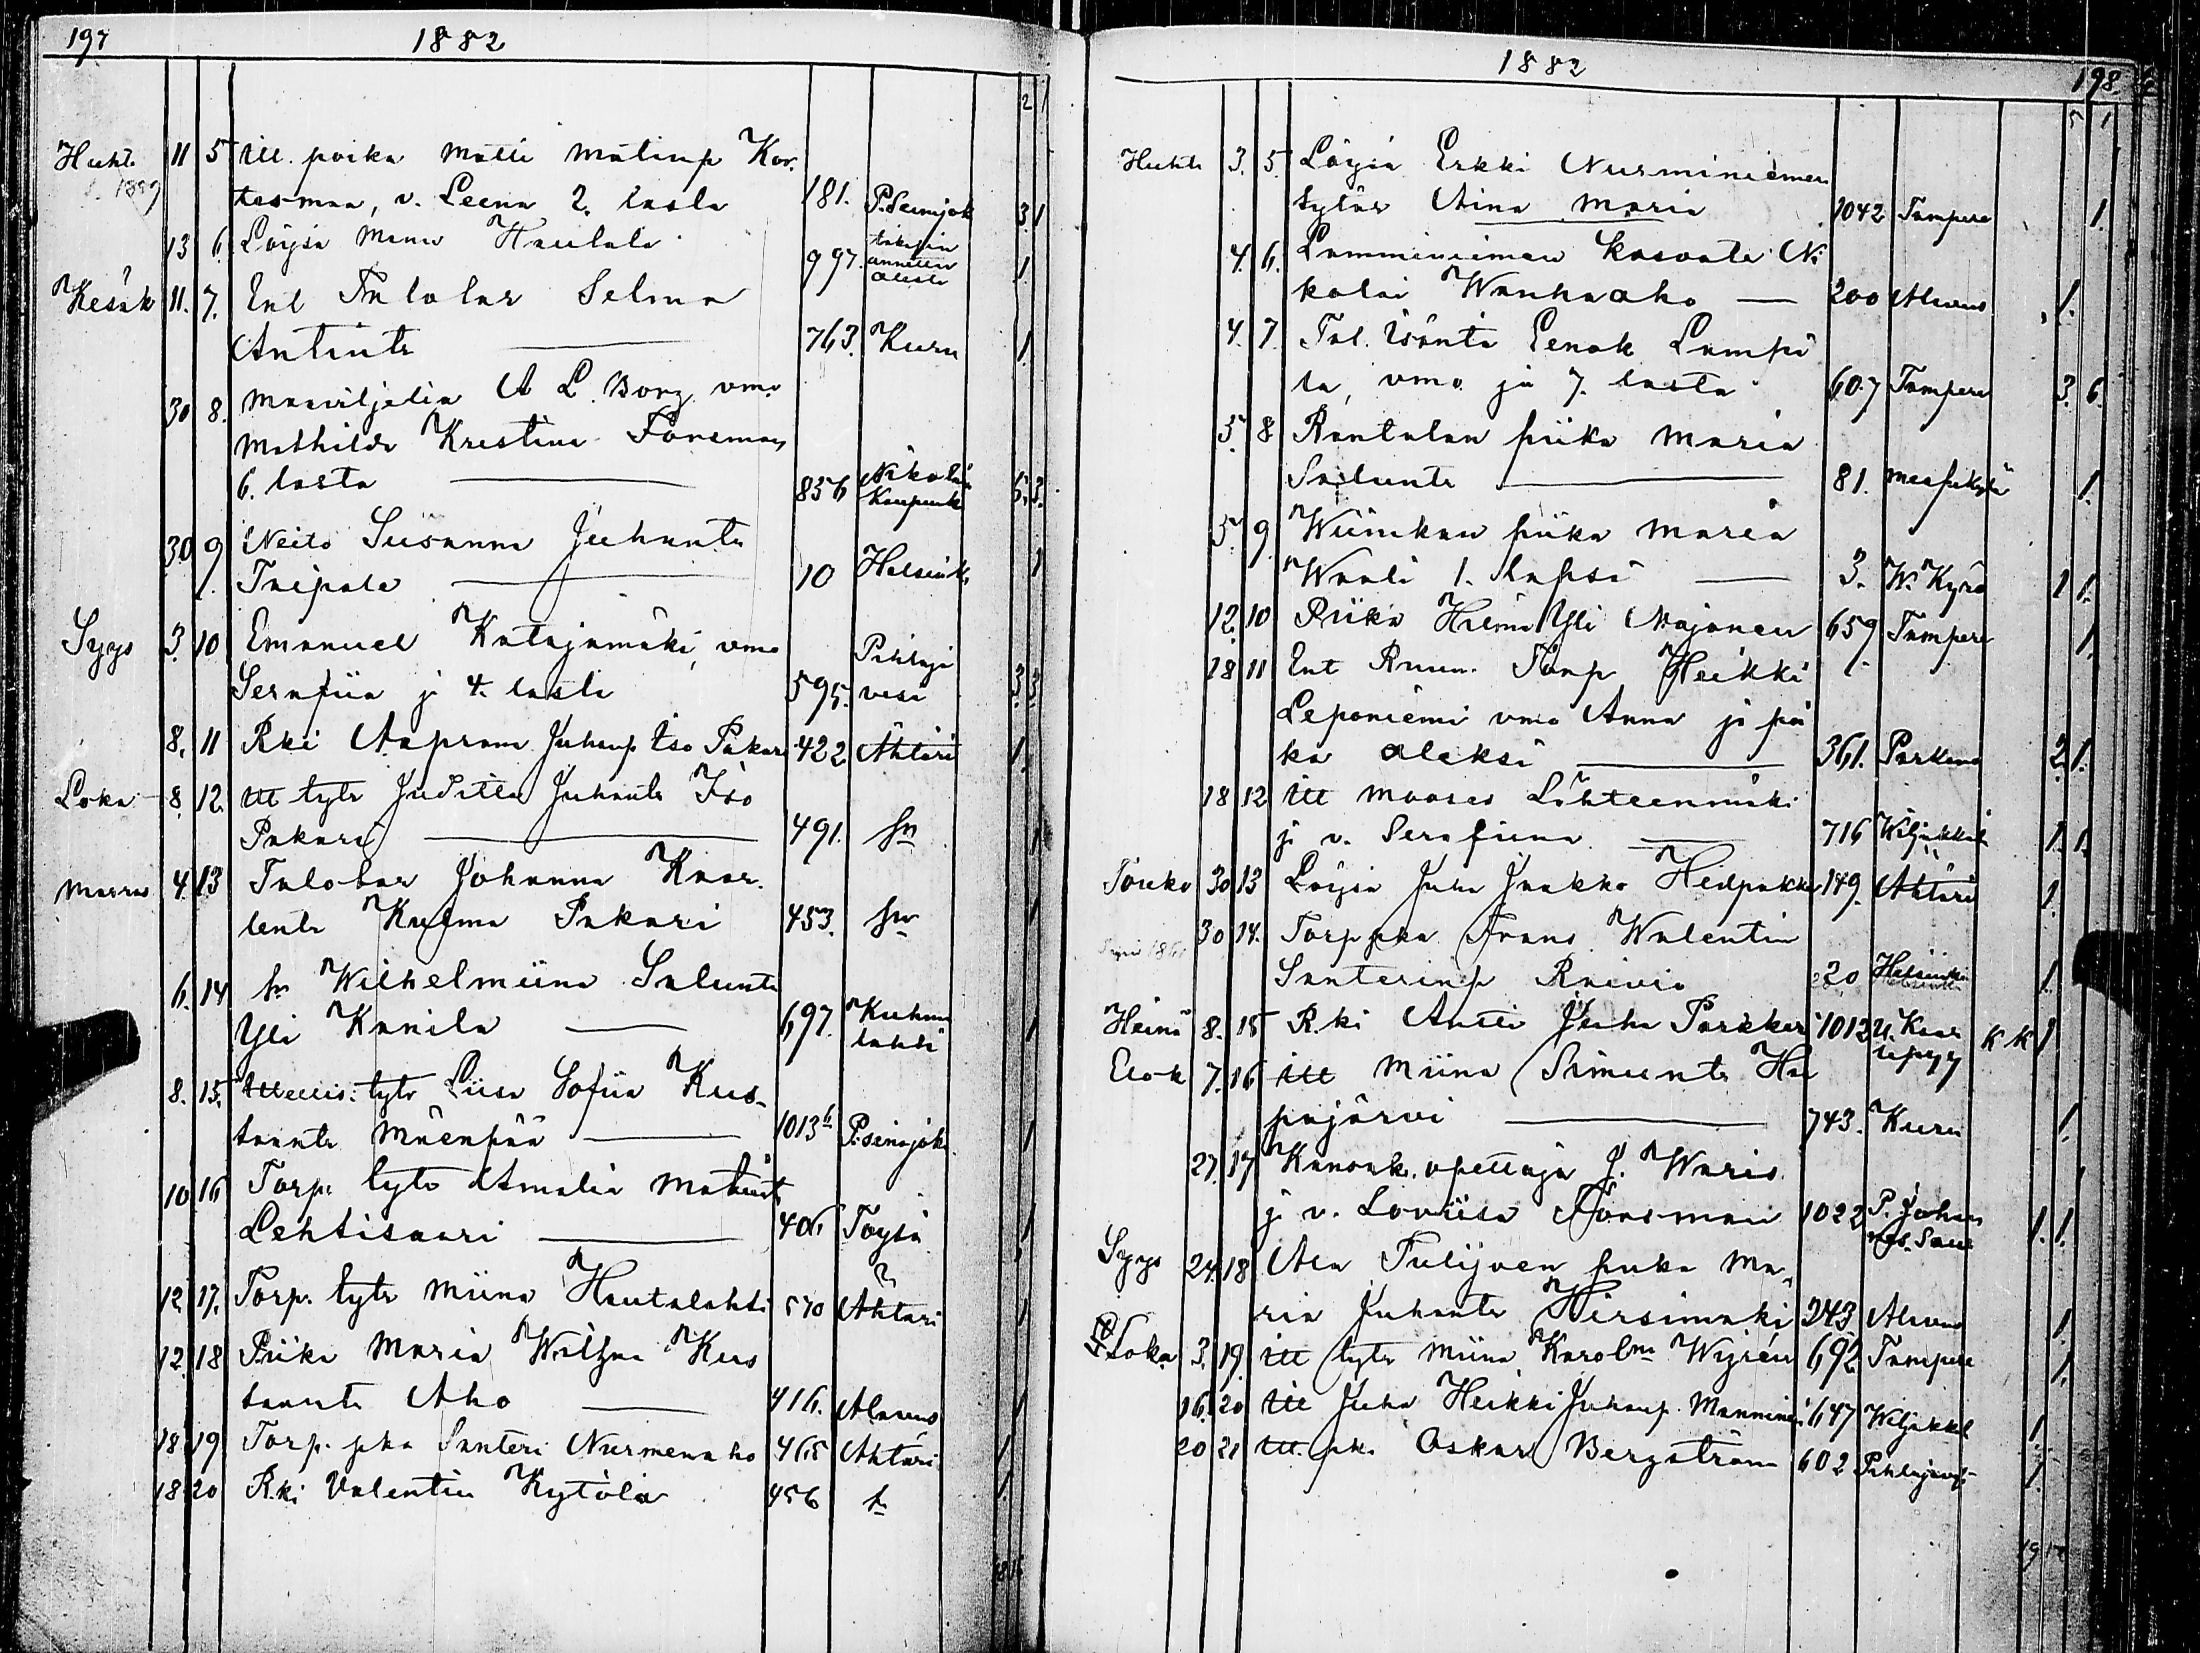 197 1882
2 1
Huht. 11 5 itt. poika Matti Matinp Kor-
tesmaa, v. Leena 2. lasta 181. P. Seinäjok 3 1
13 6. Loysä Manu Hautala 997. takasin annettu 1
Kesäk 11. 7. Ent Talolar Selma
Antint. 763. Kuru 1
30 8. Maaviljeliä A L. Borg vmo
Mathilda Kristina Forsman
6. lasta 856 Nikolain Kaupunk 5. 3.
30 9 Neito Susanna Juhant.
Taipale 10 Helsink. 1
Syys 3. 10 Emanuel Katajamäki, vmo
Serafiia j 4. lasta 595. Pihlaja vesi 3. 3.
8. 11 Rki Aapram Juhanp Iso Pakari 422 Ähtäri 1
Loka 8 12. itt tytr Juditta Juhant. Iso
Pakari 491. sn 1
Marras 4. 13 Talolar Johanna Kaar-
lent. Kujma Pakari 453. sn 1
6. 14 sn Wilhelmiina Salunt.
Yli Kanila 697. Kuhma lahti 1
8. 15. tytr Liisa Sofiia Kus-
taant. Mäenpää 1013 P. seinäjok. 1
10 16 Torp. tytr Amalia Matint
Lehtisaari 406 Töysä 1
12. 17. Torp. tytr Miina Hautalahti 570 Ähtäri 1
12. 18 Piika Maria Kus
taant. Aho 416. Alavus 1
18 19 Torp. pka Santeri Nurmenaho 465 Ähtäri 1
18 20 Rki Valentin Kytölä 456 sn 1.
1882 198
5 1
Huhti 3. 5. Löysä Erkki Nurminiemen
tytär Aina Maria 1042 Tampere 1.
4. 6. Lamminniemen kasvate Ni
kolai Wanhaaho 200 Alavus 1.
4. 7. Tal. Isäntä Eenok Lampi
la, vmo ja 7. lasta 607 Tampere 3. 6.
5. 8 Rantalan piika Maria
Salunt. 81. 1.
5. 9. Wiinikan piika Maria
Waali 1. lapsi 3. W. Kyrö 1 1.
12. 10 Piika Hilma Yli Majanen 659 Tampere 1.
18 11 Ent Ruun. Torp Heikki
Leponiemi vmo Anna ja poi
ka Aleksi 361. Parkano 2. 1.
18 12 itt Mooses Lähteenmäki
j v. Serafiina 716 Wiljakkal 1. 1.
Touko 30 13 Löysä Juha Jaakko Hietpakka 149. Ähtäri 1.
30 14. Torp pka Frans Walentin
Santerinp Raivio 220 Helsinki 1.
Heinä 8. 15 R.ki Antti Juha Parkkari 1013 U. Kaar lepyy K K 1
Elok 7. 16 itt Miina Simunt. Ha
pajärvi 743. Kuru 1.
27. 17 Kansak. opettaja J. Waris
j v. Loviisa Forsman 1022 P. Johan 1. 1.
Syys 24. 18 Ala Tulijoen piika Ma-
ria Juhant. Hirsimäki 243 Alavus 1.
Loka 3. 19. itt tytr Miina Karolna Wigren 692 Tampere 1.
16. 20 itt Juha Heikki Juhanp. Manninen 647 Wiljakkal 1.
20 21 itt. pk. Oskar Bergström 602 Pihlajav. 1.